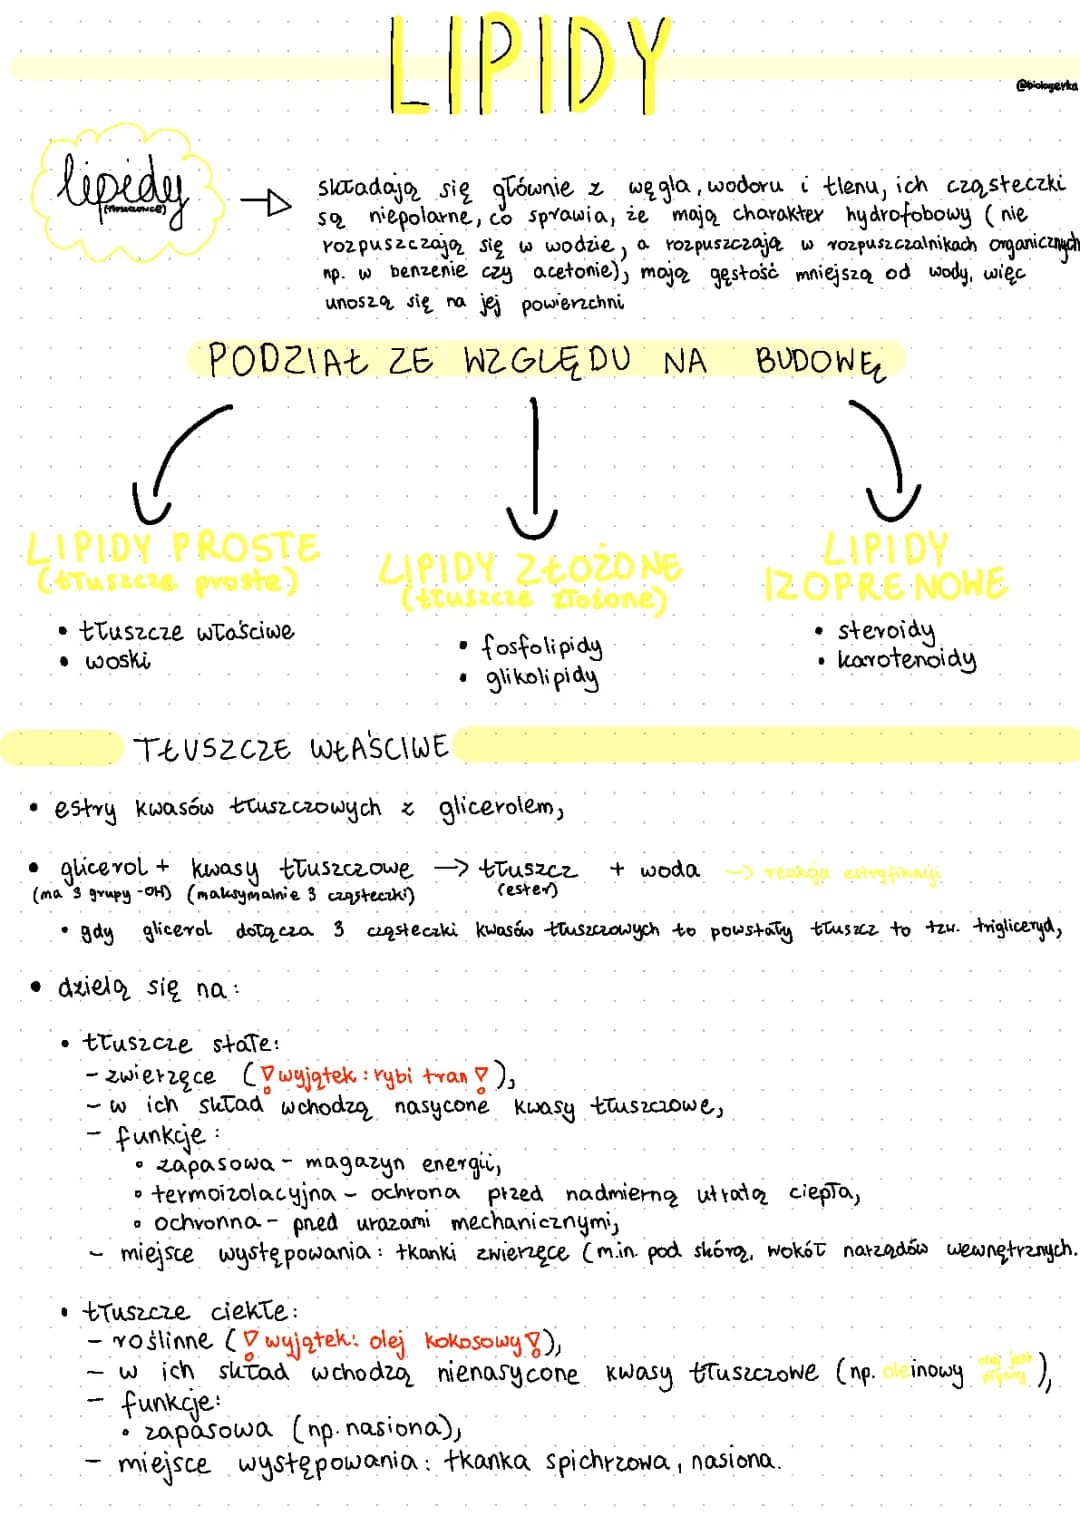 LIPIDY
@biologerka
lipidy
(tłuszczowce)
składają się głównie z węgla, wodoru i tlenu, ich cząsteczki
są niepolarne, co sprawia, że mają charakter hydrofobowy (nie
rozpuszczają się w wodzie, a rozpuszczają w rozpuszczalnikach organicznych
np. w benzenie czy acetonie), mają gęstość mniejszą od wody, więc
unoszą się na jej powierzchni
PODZIAŁ ZE WZGLĘDU NA BUDOWĘ
LIPIDY PROSTE
(tłuszcze proste)
• tłuszcze właściwe
• woski
LIPIDY ZŁOŻONE
(tłuszcze złożone)
• fosfolipidy
• glikolipidy
LIPIDY
IZOPRENOWE
• steroidy
• karotenoidy
TŁUSZCZE WŁAŚCIWE
• estry kwasów tłuszczowych z glicerolem,
• glicerol + kwasy tłuszczowe → tłuszcz + woda → reakcja estryfikacji
(ma 3 grupy -OH) (maksymalnie 3 cząsteczki) (ester)
• gdy glicerol dołącza 3 cząsteczki kwasów tłuszczowych to powstały tłuszcz to tzw. trigliceryd,
• dzielą się na:
• tłuszcze stałe:
- zwierzęce (! wyjątek: rybi tran !),
- w ich skład wchodzą nasycone kwasy tłuszczowe,
- funkcje:
• zapasowa - magazyn energii,
• termoizolacyjna - ochrona przed nadmierną utratą ciepła,
• ochronna - przed urazami mechanicznymi,
- miejsce występowania: tkanki zwierzęce (m.in. pod skórą, wokół narządów wewnętrznych.
• tłuszcze ciekłe:
- roślinne (! wyjątek: olej kokosowy !),
- w ich skład wchodzą nienasycone kwasy tłuszczowe (np. oleinowy olej jest płynny),
- funkcje:
• zapasowa (np. nasiona),
- miejsce występowania: tkanka spichrzowa, nasiona.